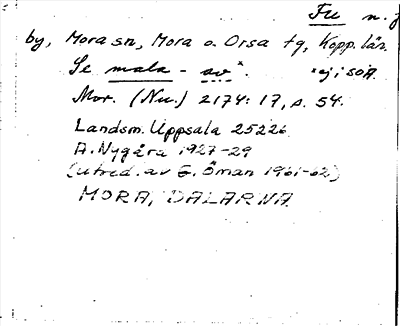 Fu n.
by, Mora sn, Mora o. Orsa tg, Kopp. län.
Se mala - av*. *ej i SOÄ
Mor. (Nu.) 2174: 17, s. 54.
Landsm. Uppsala 25226
A. Nygårs 1927-29
(utred. av E. Öman 1961-62)
MORA, DALARNA